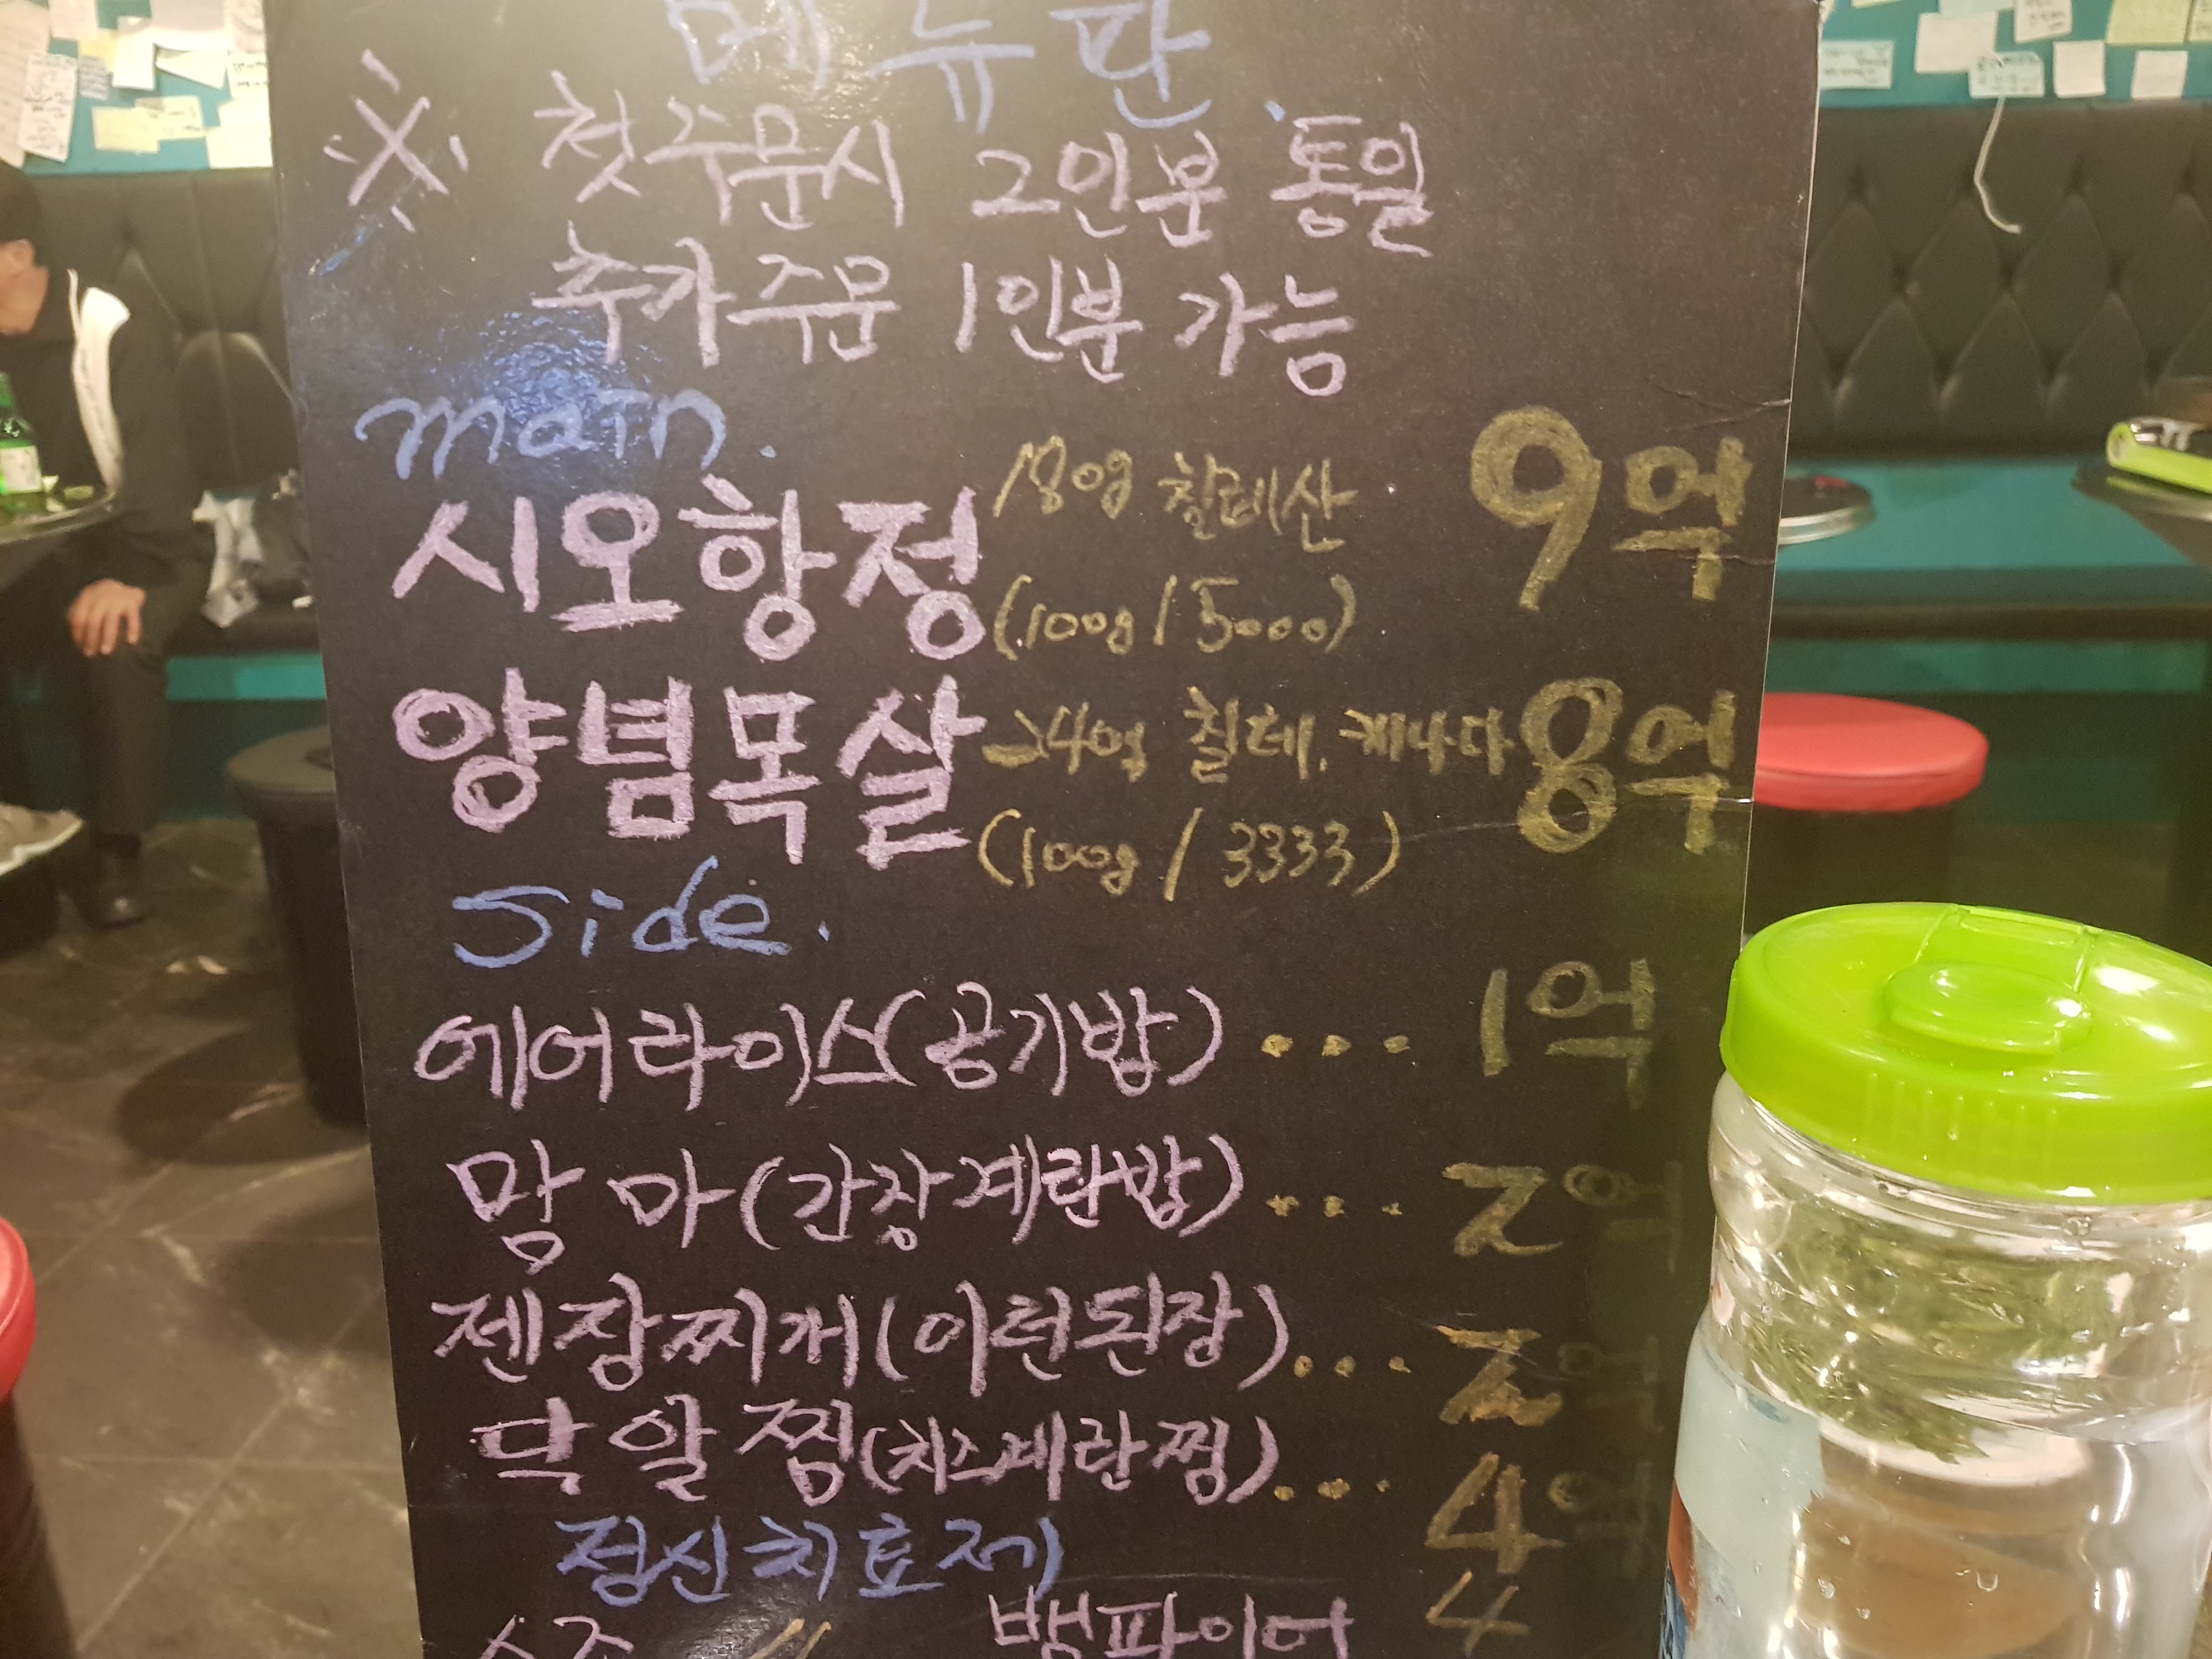 메뉴판
※ 첫주문시 2인분 통일
추가주문 1인분 가능
main.
시오항정 180g 칠레산 9억
(100g / 5000)
양념목살 칠레, 캐나다 8억
(100g / 3333)
side.
에어라이스(공기밥) ... 1억
맘마(간장계란밥) ... 2억
젠장찌개(이런된장) ... 2억
닭알찜(치즈계란찜) ... 4억
정신치료제
소주 〃 뱀파이어 4